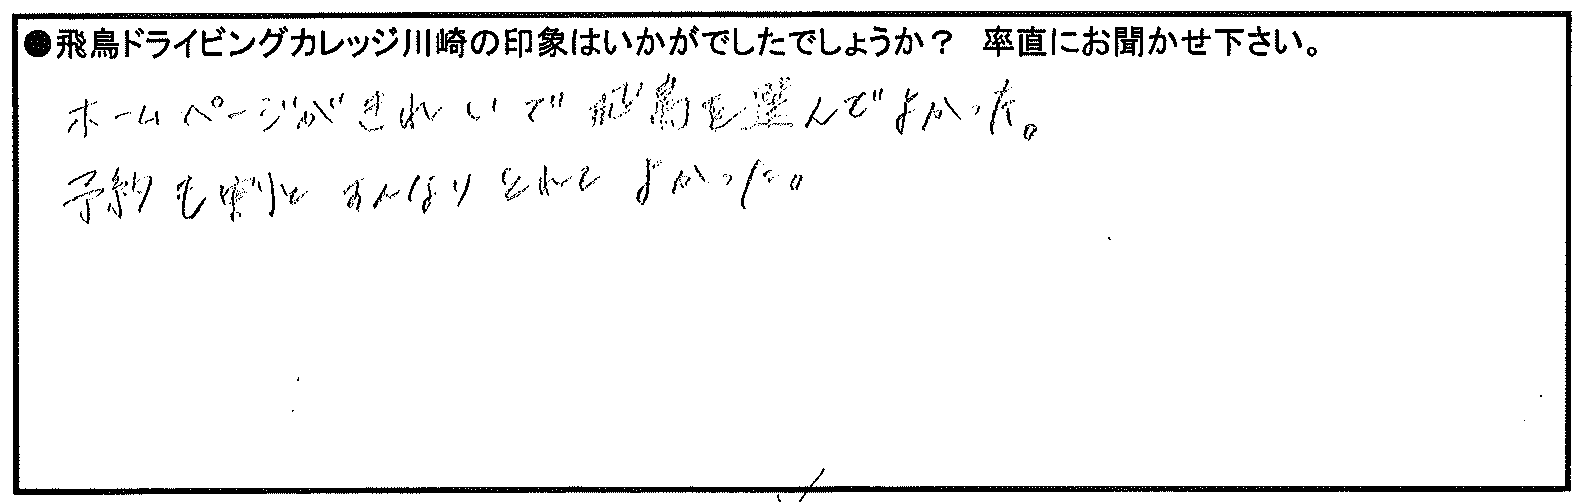 ●飛鳥ドライビングカレッジ川崎の印象はいかがでしたでしょうか？ 率直にお聞かせ下さい。
ホームページがきれいで飛鳥を選んでよかった。
予約も割とすんなりとれてよかった。